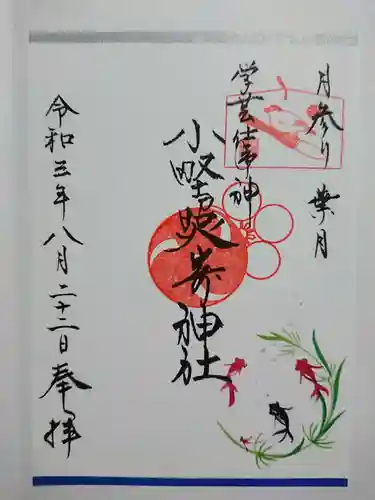 月参り 葉月
学芸仕事神
小野照崎神社
令和三年八月二十二日奉拝